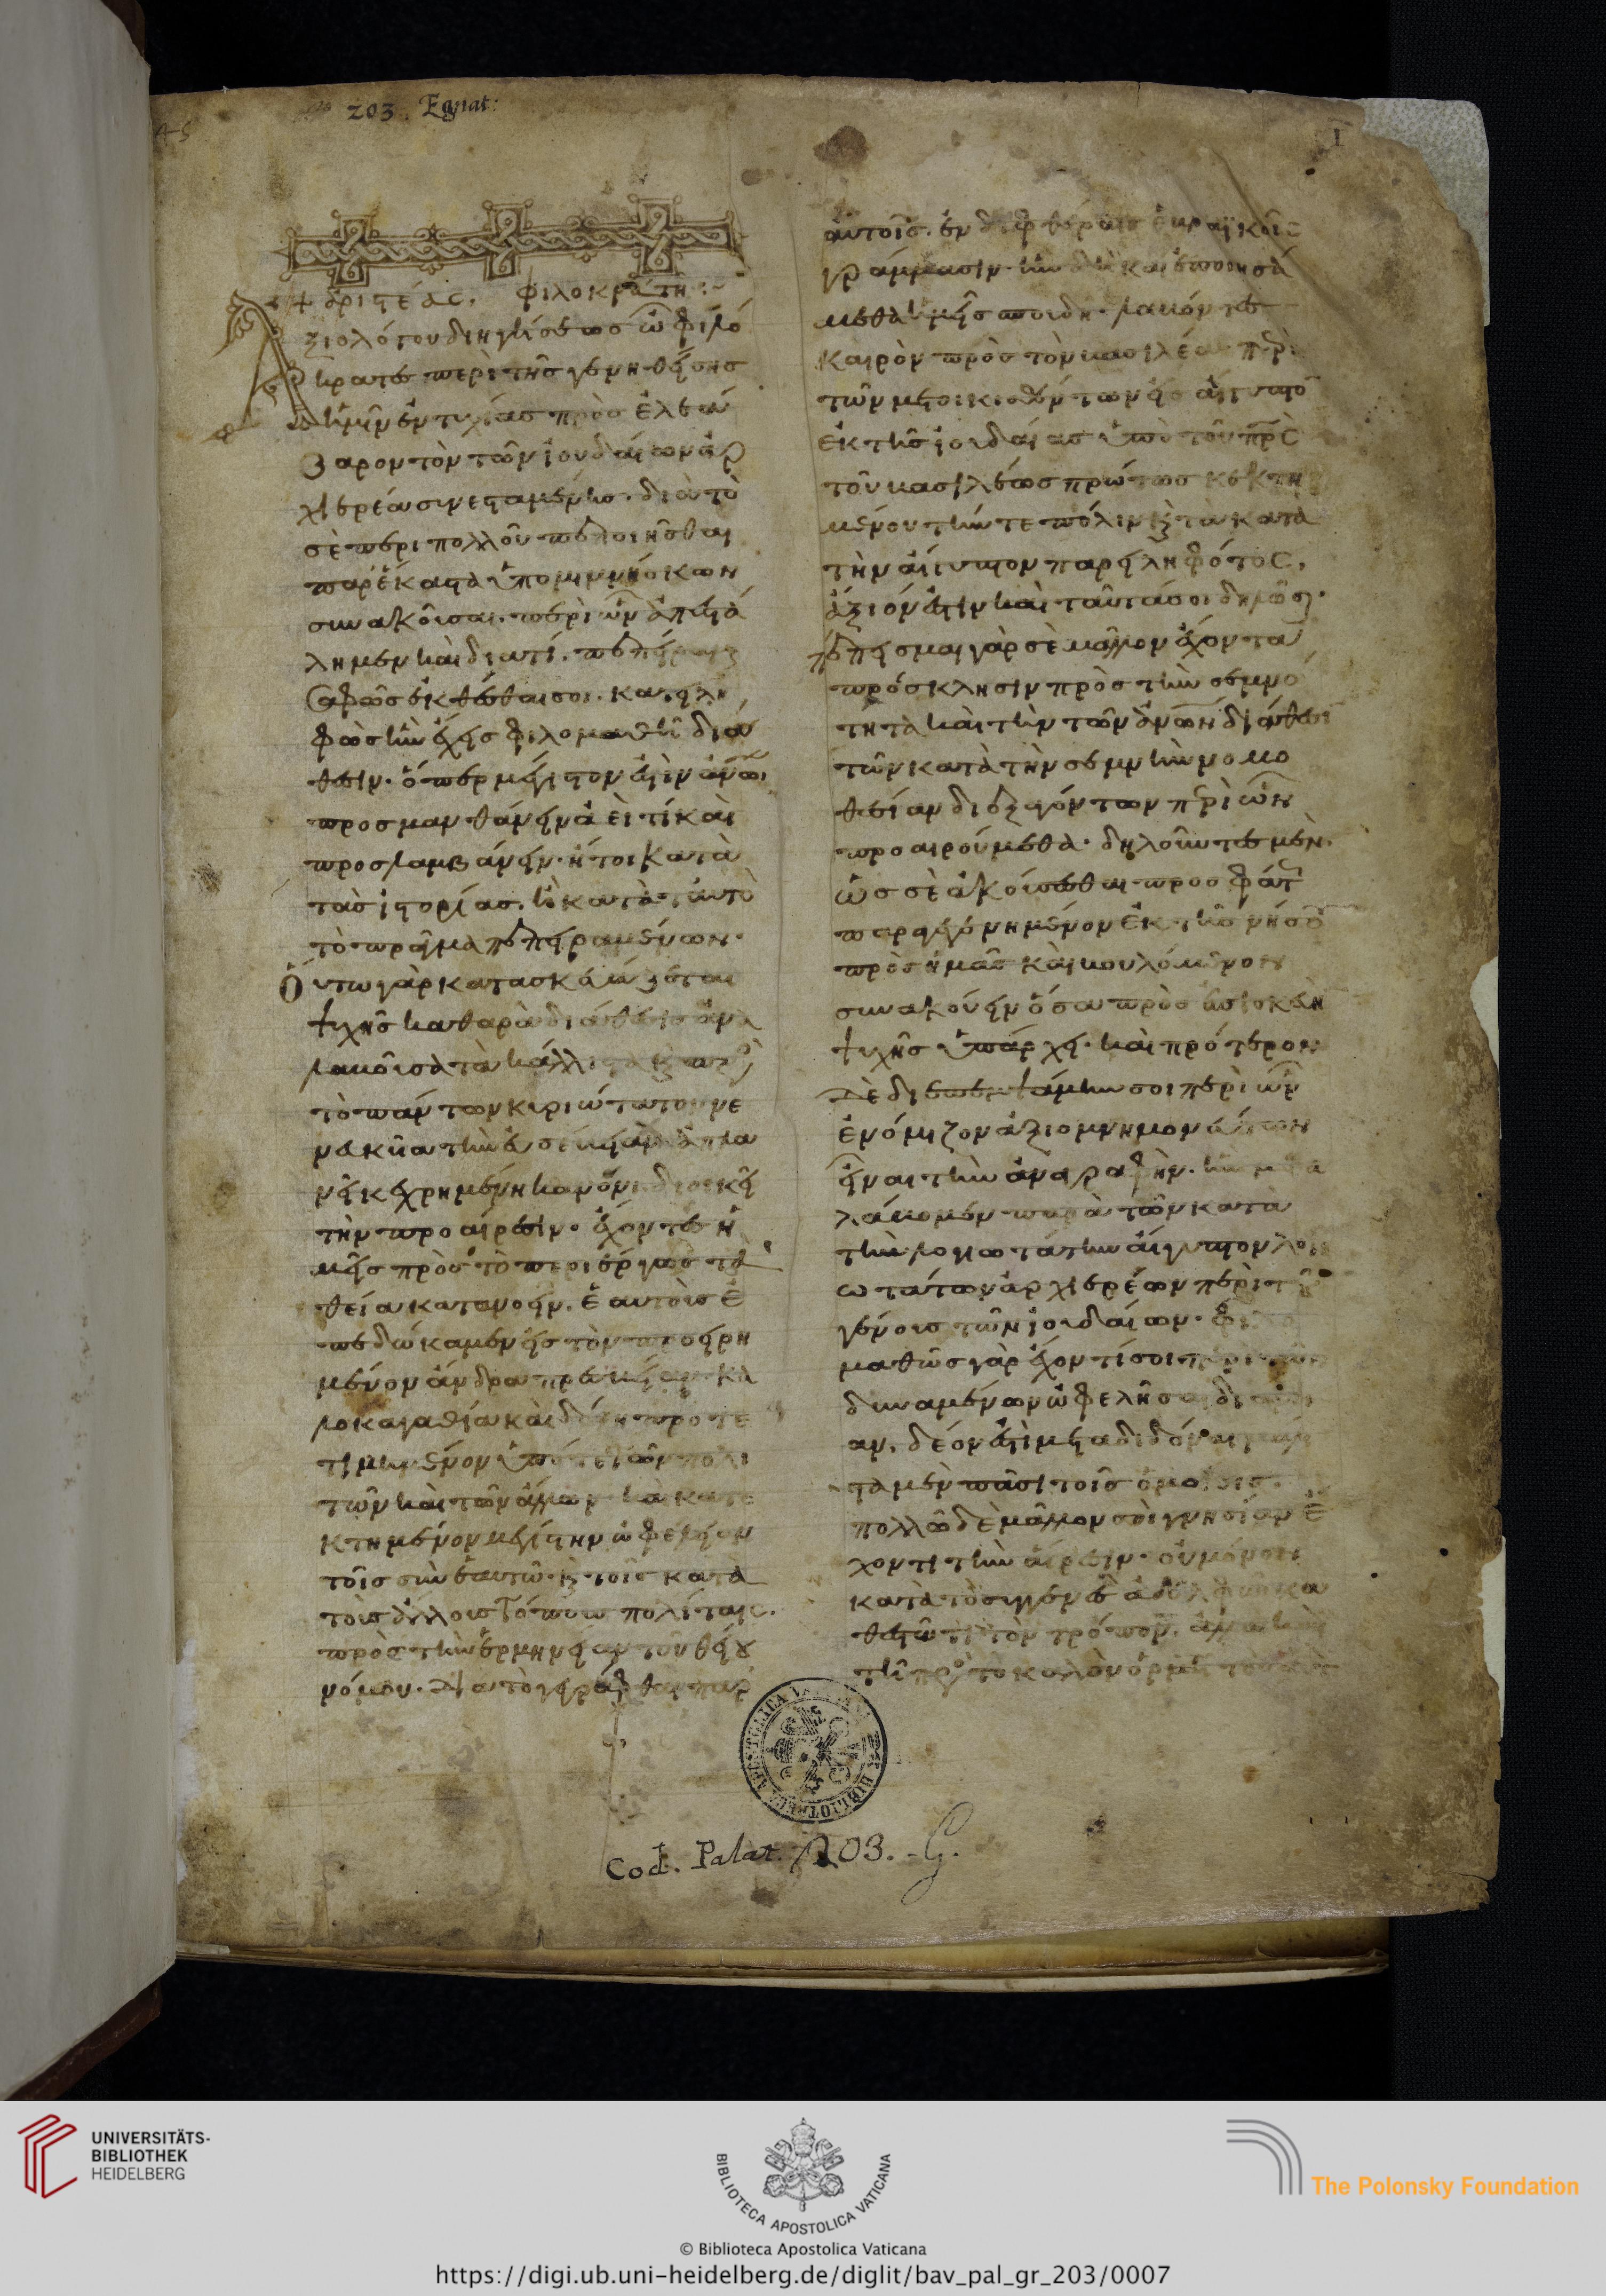 203. Egnat:
1
+ ἀριστέας. φιλοκράτη :-
Ἀξιολόγου διηγήσεως ὦ φιλό
κρατες περὶ τῆς γενηθείσης
ἡμῖν ἐντυχίας πρὸς ἐλεά
ζαρον τὸν τῶν ἰουδαίων ἀρ
χιερέα συνεσταμένης. διὰ τὸ
σὲ περι πολλοῦ πεποιῆσθαι
παρέκαστα ὑπομιμνήσκων
συνακοῦσαι. περὶ ὧν ἀπεστά
λημεν καὶ διατί. πεπείραμαι
σαφῶς ἐκθέσθαι σοι. κατειλη
φὼς ἣν ἔχεις φιλομαθῆ διά
θεσιν. ὅπερ μέγιστον ἐστιν ἀνω
προσμανθάνειν ἀεί τι καὶ
προσλαμβάνειν. ἤτοι κατὰ
τὰς ἱστορίας. ἢ κατ' αὐτὸ
τὸ πρᾶγμα πεπειραμένων.
Οὕτω γὰρ κατασκευάζεται
ψυχῆς καθαρὰ διάθεσις ἀνα
λαβοῦσα τὰ κάλλιστα καὶ πρὸς
τὸ πάντων κυριώτατον νε
νευκυῖα τὴν εὐσέβειαν ἀπλα
νεῖ κεχρημένη κανόνι διοικεῖ
τὴν προαίρεσιν. ἔχοντες ἡ
μεῖς πρὸς τὸ περιέργως τὰ
θεῖα κατανοεῖν. ἑαυτοὺς ἐ
πεδώκαμεν εἰς τὸν προειρη
μένον ἄνδρα πρεσβείαν κα
λοκαγαθία καὶ δόξη προτε
τιμημένον ὑπό τε τῶν πολι
τῶν καὶ τῶν ἄλλων καὶ κατα
κτημένον μεγίστην ὠφέλειαν
τοῖς σὺν ἑαυτῶ καὶ τοῖς κατὰ
τοὺς ἄλλους τόπους πολίταις.
πρὸς τὴν ἑρμηνείαν τοῦ θείου
νόμου. διὰ τὸ γεγράφθαι παρ
αὐτοῖς. ἐν διφθέραις ἑβραϊκοῖς
γράμμασιν. ἣν δὴ καὶ ἐποιησά
μεθα ἡμεῖς σπουδῆ. λαβόντες
καιρὸν πρὸς τὸν βασιλέα περὶ
τῶν μετοικισθέντων εἰς αἴγυπτο
ἐκ τῆς ἰουδαίας ὑπὸ τοῦ πρς
τοῦ βασιλέως πρώτως κεκτη
μένου τήν τε πόλιν καὶ τα κατὰ
τὴν αἴγυπτον παρειληφότος.
ἄξιόν ἐστιν καὶ ταῦτά σοι δηλῶσαι.
πέπεισμαι γὰρ σὲ μᾶλλον ἔχοντα
πρόσκλησιν πρὸς τὴν σεμνό
τητα καὶ τὴν τῶν ἀνων διάθεσι
τῶν κατὰ τὴν σεμνὴν νομο
θεσίαν διεξαγόντων περὶ ὧν
προαιρούμεθα. δηλοῦντες μὲν.
ὡς σὲ ἀκούσεσθαι προσφάτ
παραγεγονημένον ἐκ τῆς νήσου
πρὸς ἡμᾶς καὶ βουλόμενον
συνακούειν ὅσα πρὸς ἐπισκευὴν
ψυχῆς ὑπάρχει. καὶ πρότερον
δὲ διεπεμψάμην σοι περὶ ὧν
ἐνόμιζον ἀξιομνημονεύτων
εἶναι τὴν ἀναγραφὴν. ἣν μετε
λάβομεν παρὰ τῶν κατὰ
τὴν λογιωτάτην αἴγυπτον λογι
ωτάτων ἀρχιερέων περὶ τοῦ
γένους τῶν ἰουδαίων. φιλο
μαθῶς γὰρ ἔχοντί σοι περὶ τῶν
δυναμένων ὠφελῆσαι διάνοι
αν. δέον ἐστὶ μεταδιδόναι μάλισ
τα μὲν πᾶσι τοῖς ὁμοίοις.
πολλῶ δὲ μᾶλλον σοὶ γνησίαν ἔ
χοντι τὴν αἵρεσιν. οὐ μόνον
κατὰ τὸ συγγενὲς ἀδελφῶ κα
θεστῶτι τὸν τρόπον. ἀλλὰ καὶ
τῆ πρὸς τὸ καλὸν ὁρμῆ
Cod. Palat. 203. G.
BIBLIOTECA APOSTOLICA VATICANA
UNIVERSITÄTS-
BIBLIOTHEK
HEIDELBERG
BIBLIOTECA APOSTOLICA VATICANA
The Polonsky Foundation
© Biblioteca Apostolica Vaticana
https://digi.ub.uni-heidelberg.de/diglit/bav_pal_gr_203/0007